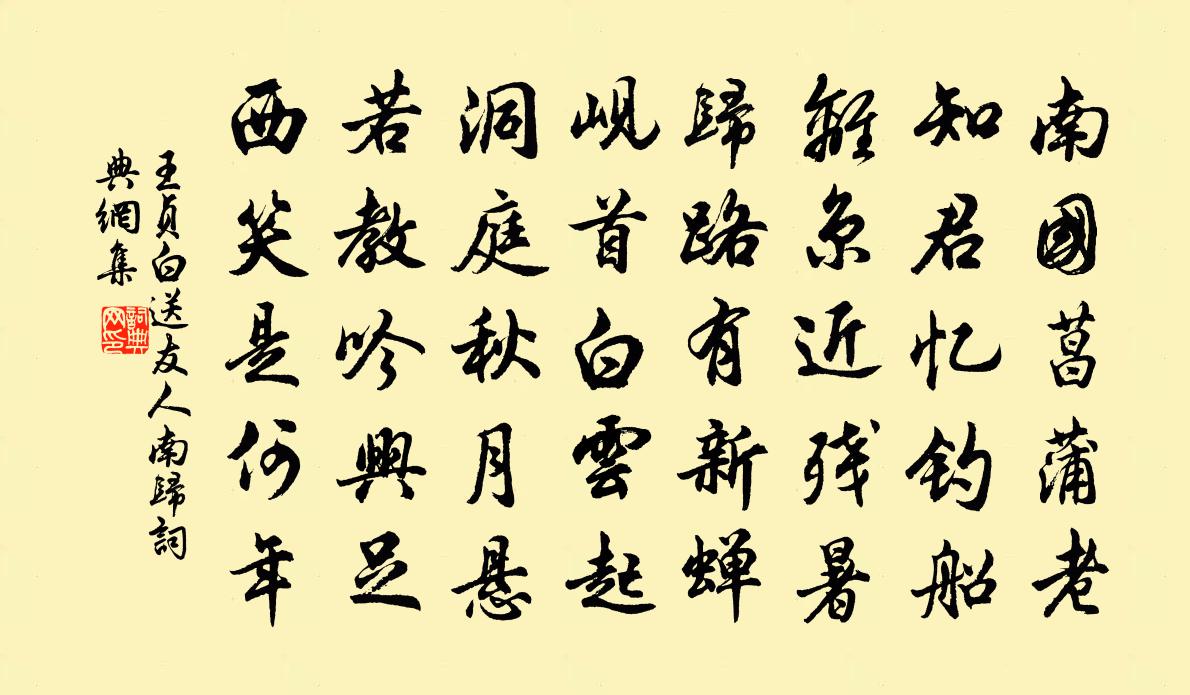 南國菖蒲老
知君忆钓船
離京近残暑
歸路有新蝉
岘首白雲起
洞庭秋月悬
若教吟興足
西笑是何年
王貞白送友人南歸詞
典網集
詞典网印